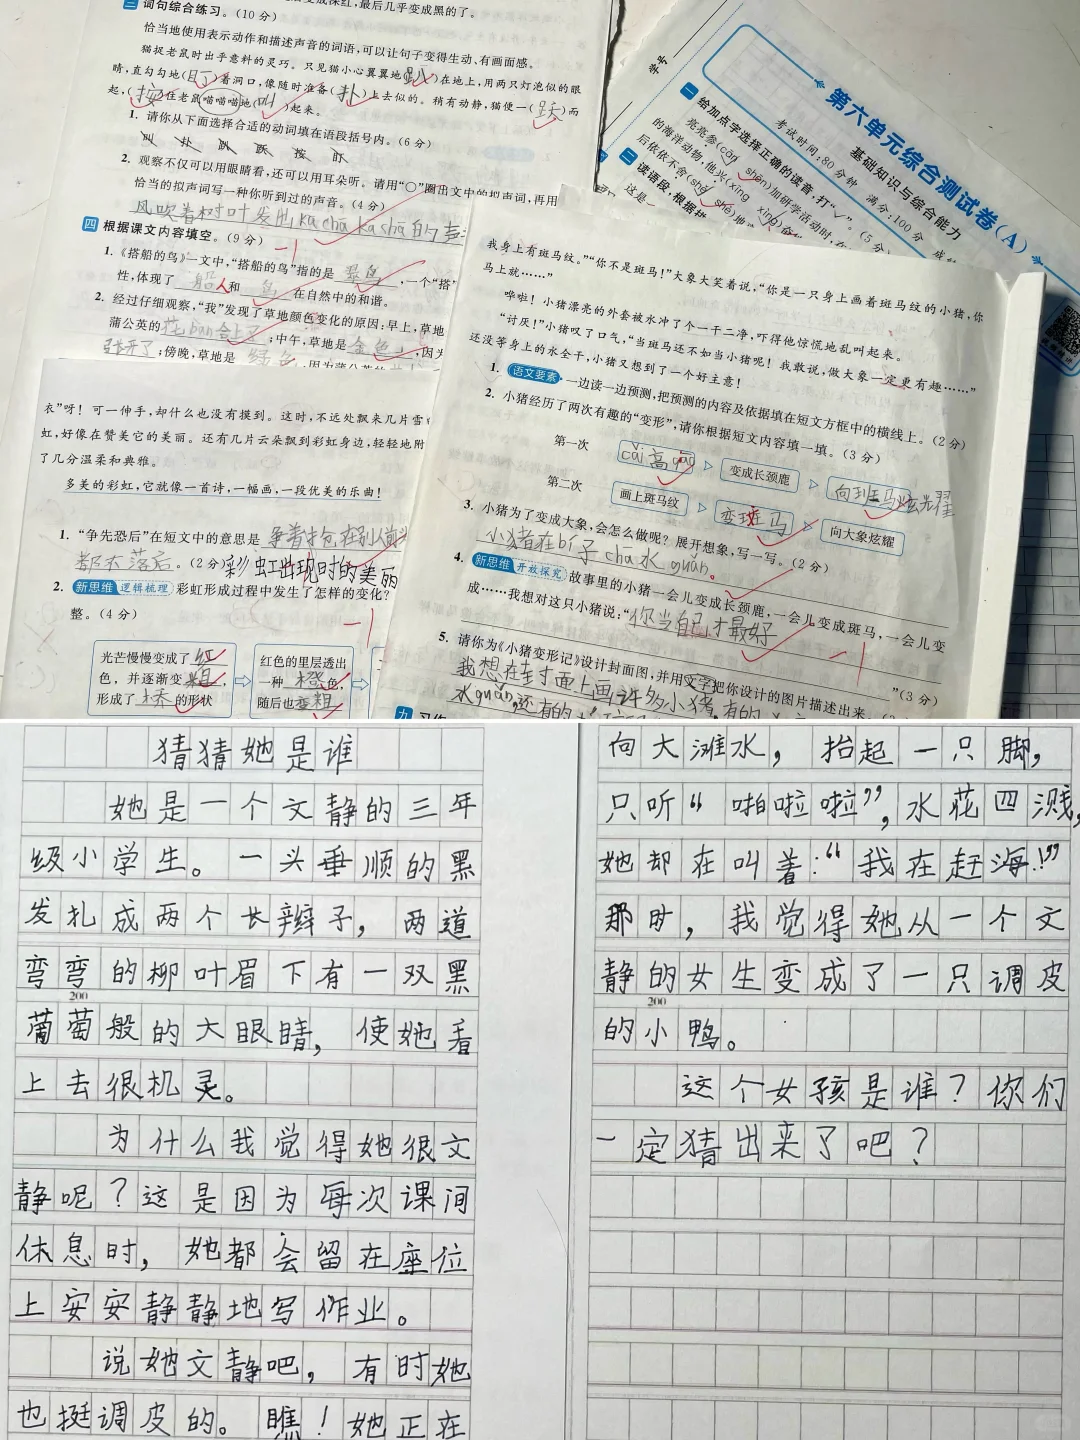 变成深红,最后几乎变成黑的了。
三 词句综合练习。(10分)
恰当地使用表示动作和描述声音的词语,可以让句子变得生动、有画面感。
猫捉老鼠时出乎意料的灵巧。只见猫小心翼翼地(趴)在地上,用两只灯泡似的眼
睛,直勾勾地(盯)着洞口,像随时准备(扑)上去似的。稍有动静,猫便一(跃)而
起,(按)住老鼠喵喵喵地(叫)起来。
1. 请你从下面选择合适的动词填在语段括号内。(6分)
叫 扑 趴 跃 按 盯
2. 观察不仅可以用眼睛看,还可以用耳朵听。请用“○”圈出文中的拟声词,再用
恰当的拟声词写一种你听到过的声音。(4分)
风吹着树叶发出kā chā kā chā的声
四 根据课文内容填空。(9分)
-1
1.《搭船的鸟》一文中,“搭船的鸟”指的是 翠鸟 ,一个“搭”
性,体现了 船人 和 鸟 在自然中的和谐。
2. 经过仔细观察,“我”发现了草地颜色变化的原因:早上,草地
蒲公英的花bàn合上了;中午,草地是 金色 ,因为
张开了;傍晚,草地是 绿色
学号
第六单元综合测试卷(A)
基础知识与综合能力
考试时间:80分钟 满分:100分
一 给加点字选择正确的读音,打“√”。(5分)
亮亮参(cān shēn)加研学活动时,在
的海洋动物,他兴(xīng xìng)
后依依不舍(shě shè)地
这是
二 读语段,根据拼
衣”呀!可一伸手,却什么也没有摸到。这时,不远处飘来几片雪
虹,好像在赞美它的美丽。还有几片云朵飘到彩虹身边,轻轻地附
了几分温柔和典雅。
多美的彩虹,它就像一首诗,一幅画,一段优美的乐曲!
1. “争先恐后”在短文中的意思是 争着抢在别人前头
都不落后。(2分)彩虹出现时的美丽
2. 新思维 逻辑梳理 彩虹形成过程中发生了怎样的变化?
整。(4分)
-1
光芒慢慢变成了 红
色,并逐渐变 粗 ,
形成了 桥 的形状
红色的里层透出
一种 橙 色,
随后也变粗
我身上有斑马纹。”“你不是斑马!”大象大笑着说,“你是一只身上画着斑马纹的小猪,你
马上就……”
哗啦!小猪漂亮的外套被水冲了个一干二净,吓得他惊慌地乱叫起来。
“讨厌!”小猪叹了口气,“当斑马还不如当小猪呢!我敢说,做大象一定更有趣……”
还没等身上的水全干,小猪又想到了一个好主意!
1. 语文要素 一边读一边预测,把预测的内容及依据填在短文方框中的横线上。(2分)
2. 小猪经历了两次有趣的“变形”,请你根据短文内容填一填。(3分)
第一次 cǎi高qiāo 变成长颈鹿 向斑马炫耀
第二次 画上斑马纹 变斑马 向大象炫耀
3. 小猪为了变成大象,会怎么做呢?展开想象,写一写。(2分)
小猪在bí子chā水guǎn。
4. 新思维 开放探究 故事里的小猪一会儿变成长颈鹿,一会儿变成斑马,一会儿变
成……我想对这只小猪说:“你当自己才最好
”(3分)
-1
5. 请你为《小猪变形记》设计封面图,并用文字把你设计的图片描述出来。
我想在封面上画许多小猪,有的
水guǎn,还有的
九
猜猜她是谁
她是一个文静的三年
级小学生。一头垂顺的黑
发扎成两个长辫子,两道
弯弯的柳叶眉下有一双黑
200
葡萄般的大眼睛,使她看
上去很机灵。
为什么我觉得她很文
静呢?这是因为每次课间
休息时,她都会留在座位
上安安静静地写作业。
说她文静吧,有时她
也挺调皮的。瞧!她正在
向大滩水,抬起一只脚,
只听“啪啦啦”,水花四溅,
她却在叫着:“我在赶海!”
那时,我觉得她从一个文
静的女生变成了一只调皮
200
的小鸭。
这个女孩是谁?你们
一定猜出来了吧?